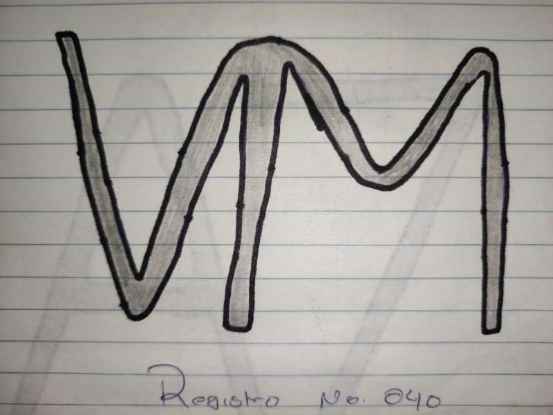 VM
Registro No. 040